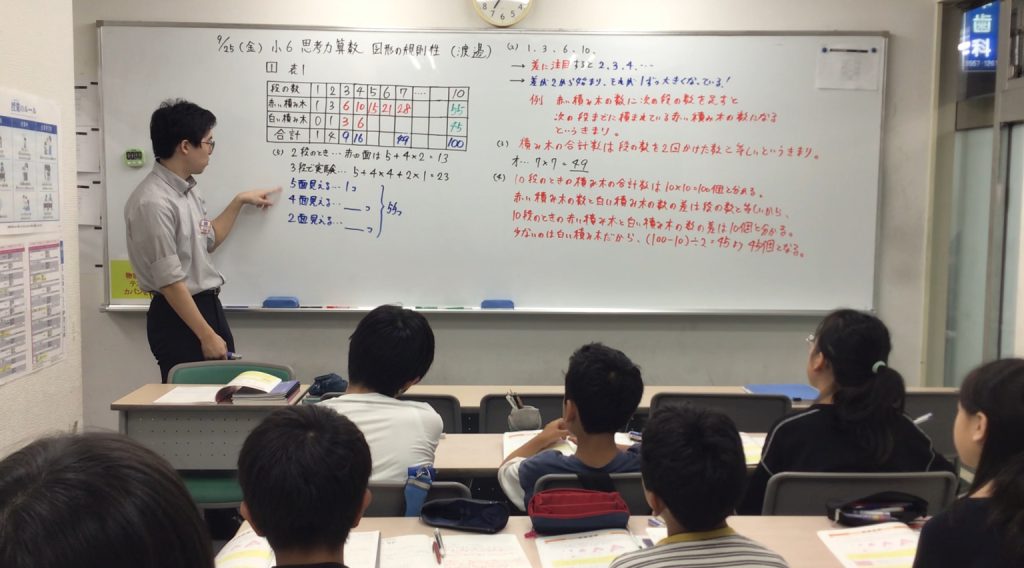 9/25(金) 小6 思考力算数 図形の規則性 (渡邉)
1 表1
段の数 1 2 3 4 5 6 7 …… 10
赤い積み木 1 3 6 10 15 21 28 55
白い積み木 0 1 3 6 45
合計 1 4 9 16 49 100
2段のとき… 赤の面は5+4×2=13
3段で実験… 5+4×4+2×1=23
5面見える… 1つ
4面見える… __つ
2面見える… __つ
(2) 1, 3, 6, 10,
→ 差に注目すると 2, 3, 4, …
→ 差が2から始まり、それが1ずつ大きくなっている!
例 赤い積み木の数に次の段の数を足すと
次の段までに積まれている赤い積み木の数になる
というきまり。
(3) 積み木の合計数は段の数を2回かけた数と等しいというきまり。
オ… 7×7=49
(4) 10段のときの積み木の合計数は10×10=100個と分かる。
赤い積み木の数と白い積み木の数の差は段の数と等しいから、
10段のときの赤い積み木と白い積み木の数の差は10個と分かる。
少ないのは白い積み木だから、(100-10)÷2=45より 45個となる。
歯
科